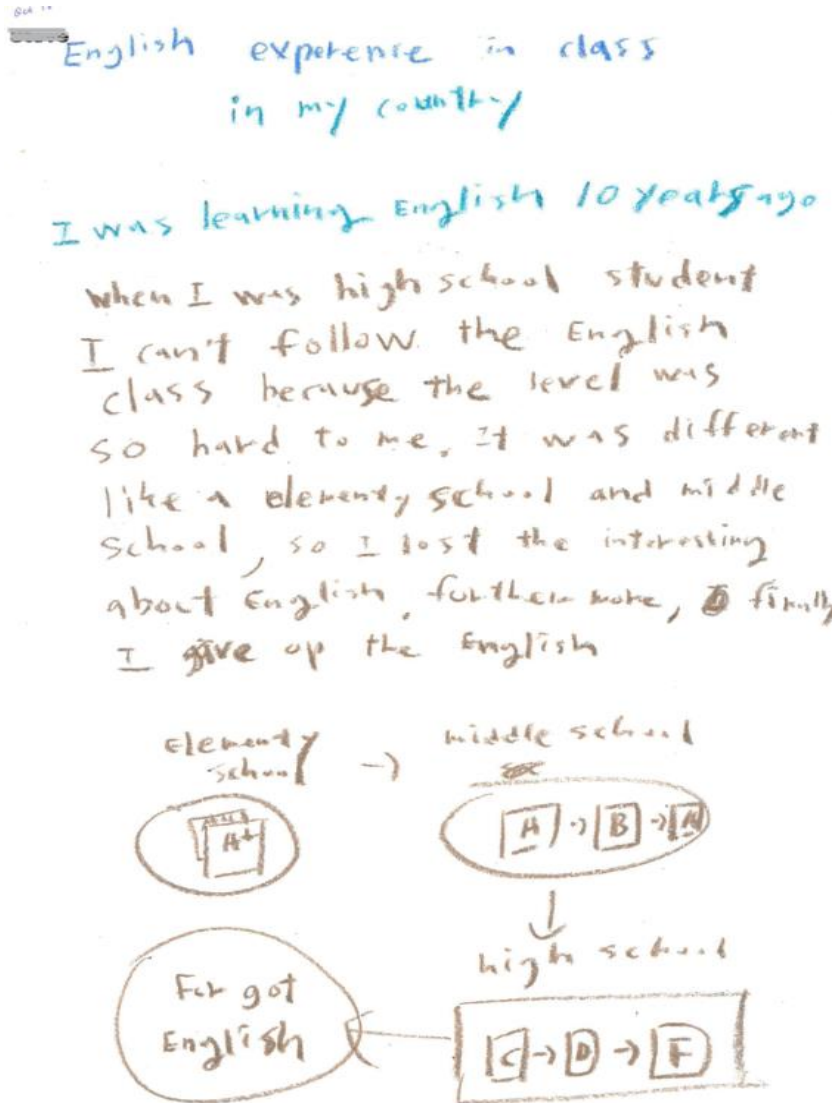 English experense in class
in my country
I was learning English 10 years ago
when I was high school student
I can't follow the English
class because the level was
so hard to me. It was different
like a elementy school and middle
school, so I lost the interesting
about English, furthermore, finally
I give up the English
elementy
school → middle school
A+
A → B → A
high school
Forgot
English
C → D → F